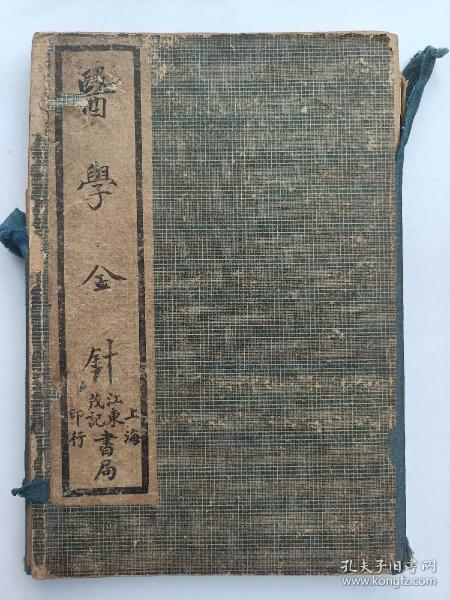 醫學金針
上海
江東
茂記
書局
印行
孔夫子旧书网
www.kongfz.com